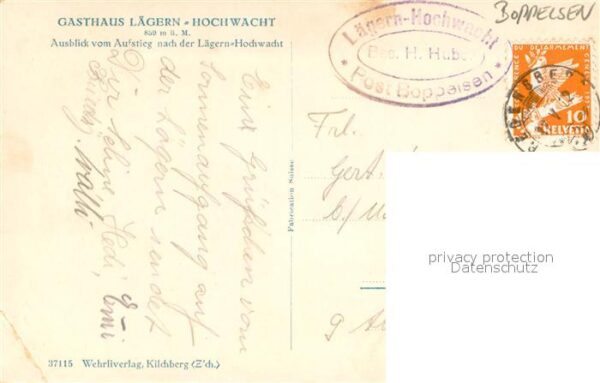 GASTHAUS LÄGERN-HOCHWACHT
859 m ü. M.
Ausblick vom Aufstieg nach der Lägern-Hochwacht
Lägern-Hochwacht
Bes. H. Hube
* Post Boppelsen *
BOPPELSEN
DU DESARMEMENT
10
HELVETIA
Ein Grüsschen vom
Sonnenaufgang auf
der Lägern sendet
Dir Hedi,
Emi
Walti
Frl.
Fabrication Suisse
privacy protection
Datenschutz
37115 Wehrliverlag, Kilchberg (Z'ch.)